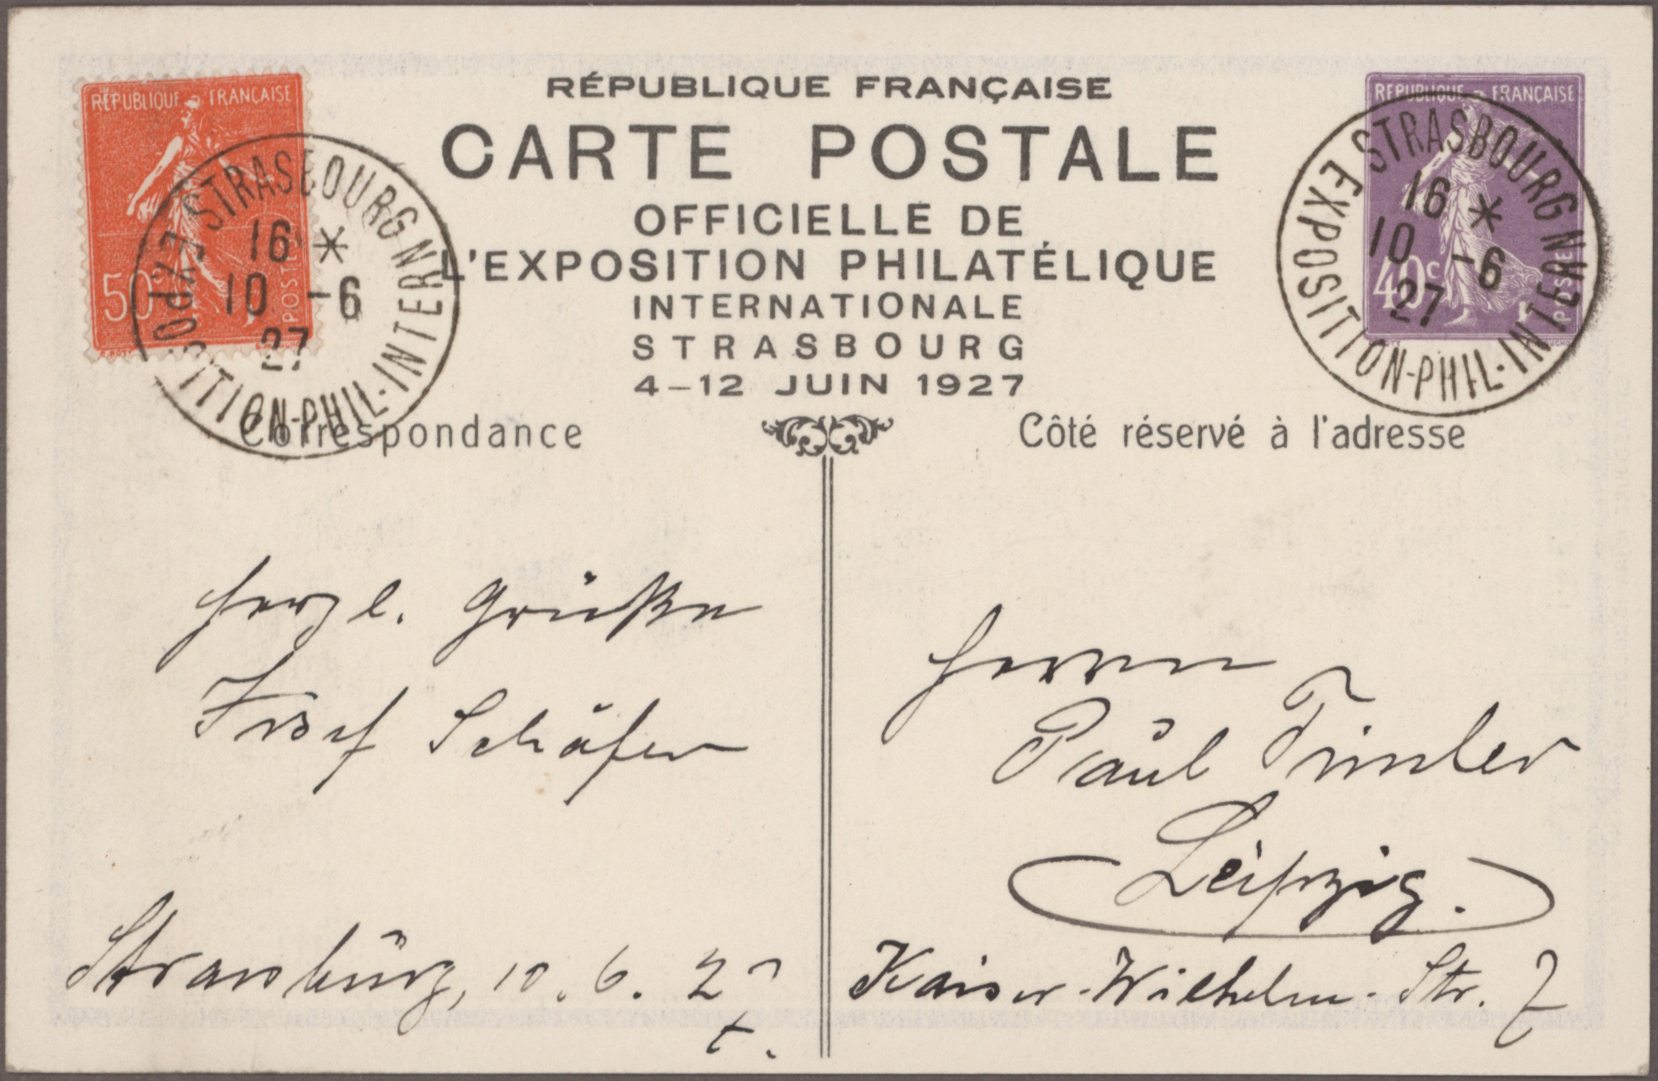 RÉPUBLIQUE FRANÇAISE
CARTE POSTALE
OFFICIELLE DE
L'EXPOSITION PHILATÉLIQUE
INTERNATIONALE
STRASBOURG
4–12 JUIN 1927
RÉPUBLIQUE FRANÇAISE
50c
POSTES
STRASBOURG
EXPOSITION-PHIL-INTERN
16 *
10 -6
27
RÉPUBLIQUE FRANÇAISE
40c
POSTES
STRASBOURG
EXPOSITION-PHIL-INTERN
16 *
10 -6
27
Correspondance
Côté réservé à l'adresse
Herzl. Grüße
Schäfer
Strassburg, 10. 6. 27
Herrn
Paul
Leipzig.
Kaiser-Wilhelm-Str.